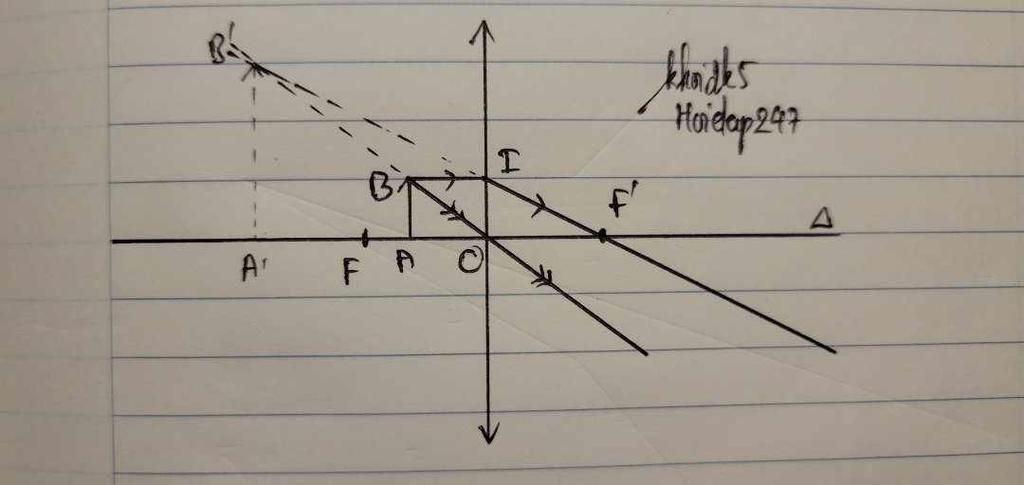 B'
khoidk5
Hoidap247
I
B
F'
Δ
A'
F
A
O